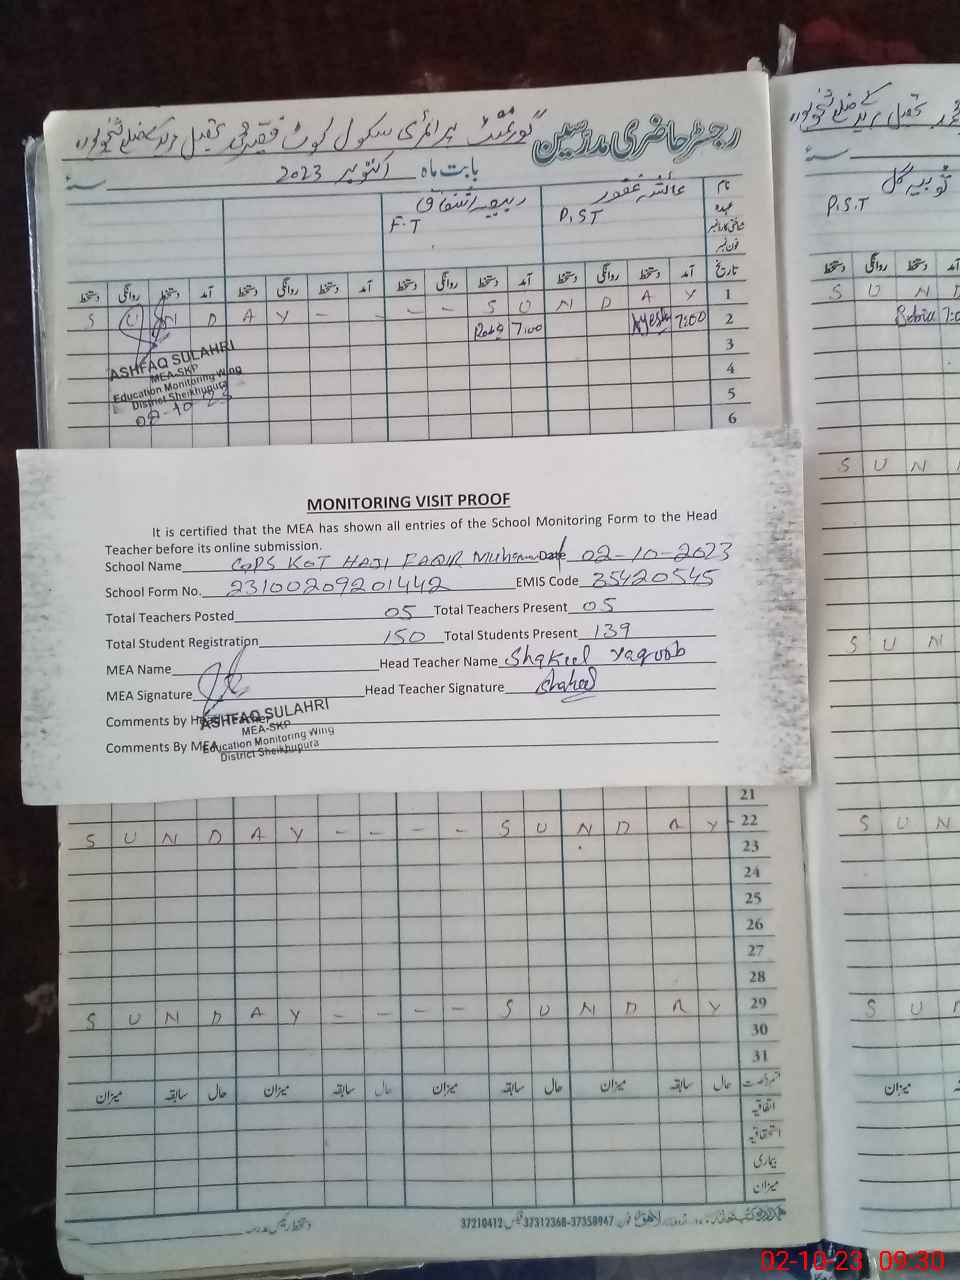 رجسٹر حاضری مدرسین گورنمنٹ پرائمری سکول کوٹ فقیر محمد تحصیل ضلع شیخوپورہ
بابت ماہ اکتوبر 2023 سنہ
نام عائشہ غفور ربیعہ اشفاق
عہدہ P.S.T F.T
شناختی کارڈ نمبر
فون نمبر
تاریخ آمد دستخط روانگی دستخط آمد دستخط روانگی دستخط آمد دستخط روانگی دستخط آمد دستخط روانگی دستخط
S U N D A Y - - - - S U N D A Y 1
7:00 Ayesha 7:00 2
3
4
5
6
ASHFAQ SULAHRI
MEA-SKP
Education Monitoring Wing
District Sheikhupura
02-10-23
MONITORING VISIT PROOF
It is certified that the MEA has shown all entries of the School Monitoring Form to the Head
Teacher before its online submission.
School Name GPS KOT HAJI FAQIR Muhammad Date 02-10-2023
School Form No. 23100209201442 EMIS Code 35420545
Total Teachers Posted 05 Total Teachers Present 05
Total Student Registration 150 Total Students Present 139
MEA Name Head Teacher Name Shakeel Yaqoob
MEA Signature Head Teacher Signature Shakeel
Comments by Head Teacher
Comments By MEA
ASHFAQ SULAHRI
MEA-SKP
Education Monitoring Wing
District Sheikhupura
21
S U N D A Y - - - - S U N D A Y - 22
23
24
25
26
27
28
S U N D A Y - - - - S U N D A Y 29
30
31
حال سابقہ میزان حال سابقہ میزان حال سابقہ میزان حال سابقہ میزان
اتفاقیہ
استحقاقیہ
بیماری
میزان
لاہور فون 37312368-37358947 فیکس 37210412
ثوبیہ گل
P.S.T
دستخط روانگی دستخط آمد
S U N D
7:0
S U N
S U N
S U N
S U D
میزان
02-10-23 09:30